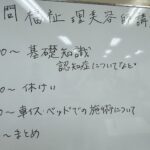 問 福祉理美容師 講
0～ 基礎知識
認知症についてなど
0～ 休けい
0～ 車イス・ベッドでの施術について
～まとめ